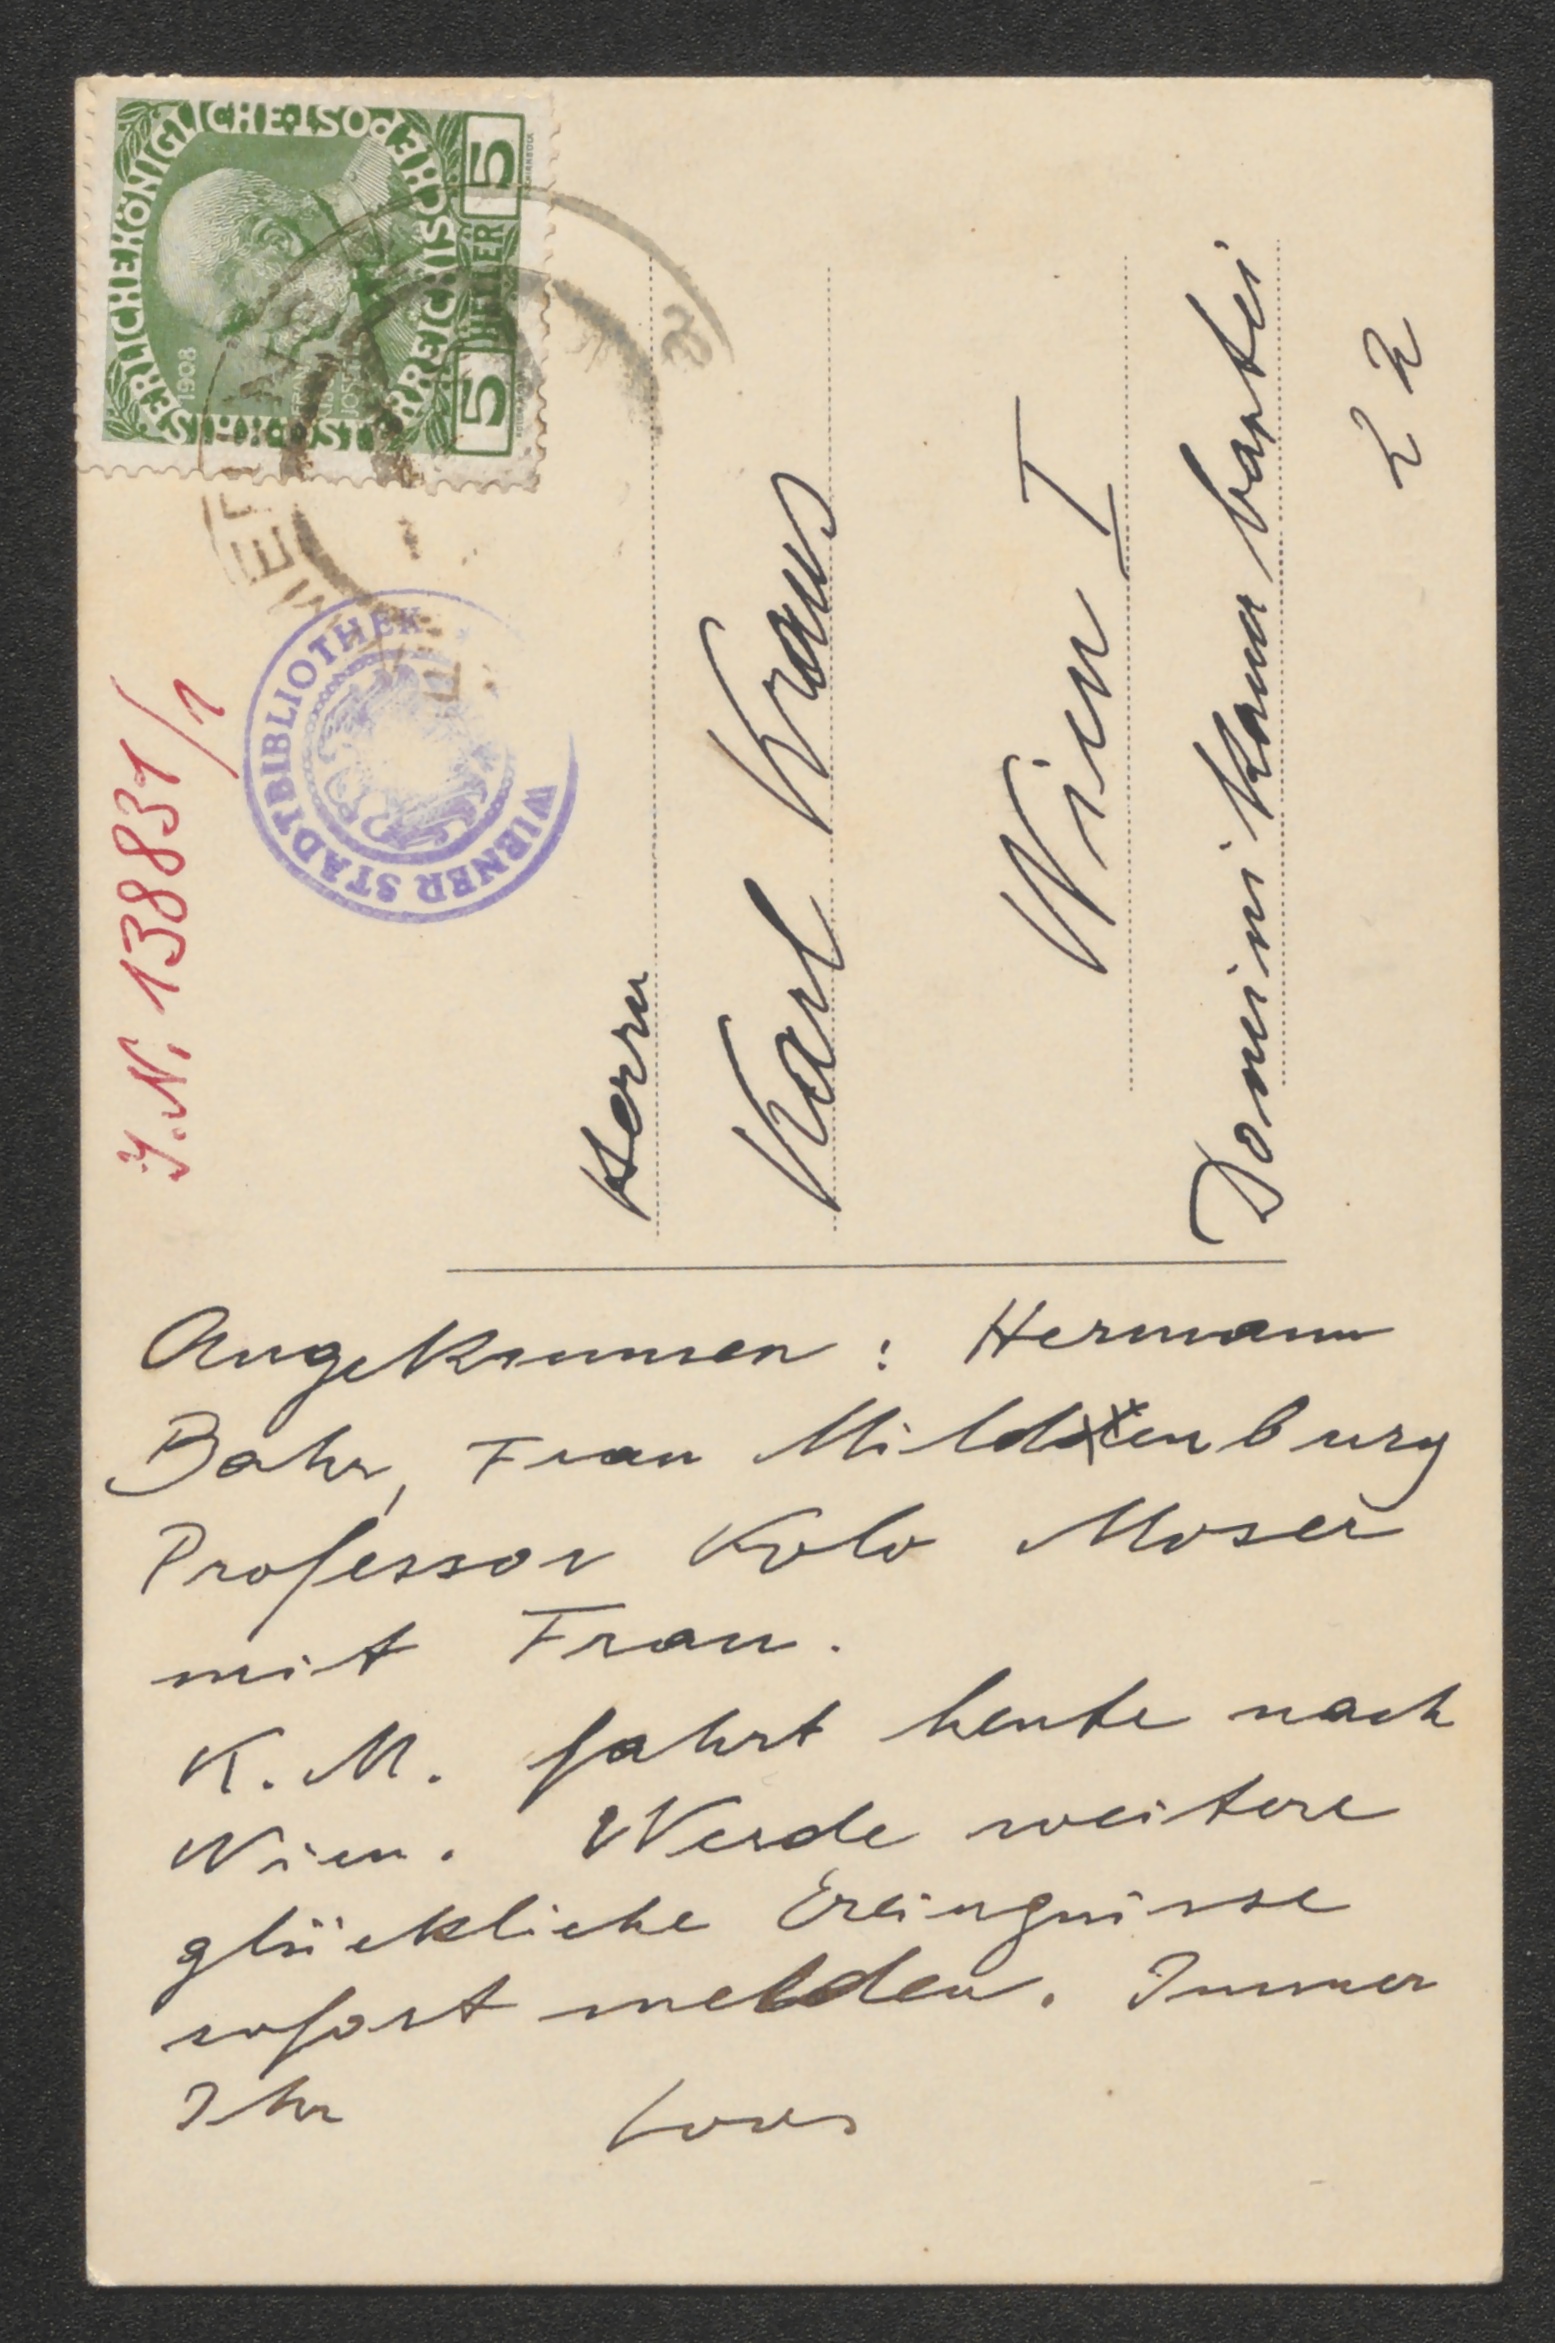 KAISERLICHEKÖNIGLICHE ÖSTERREICHISCHE POST
1908
5 HELLER 5
WIENER STADTBIBLIOTHEK
J.N. 138831/1
Herrn
Karl Kraus
Wien I
Dominikanerbastei
22
Angekommen : Hermann
Bahr, Frau Mildenburg
Professor Kolo Moser
mit Frau.
K. M. fahrt heute nach
Wien. Werde weitere
glückliche Ereingnisse
sofort melden. Immer
Ihr Loos